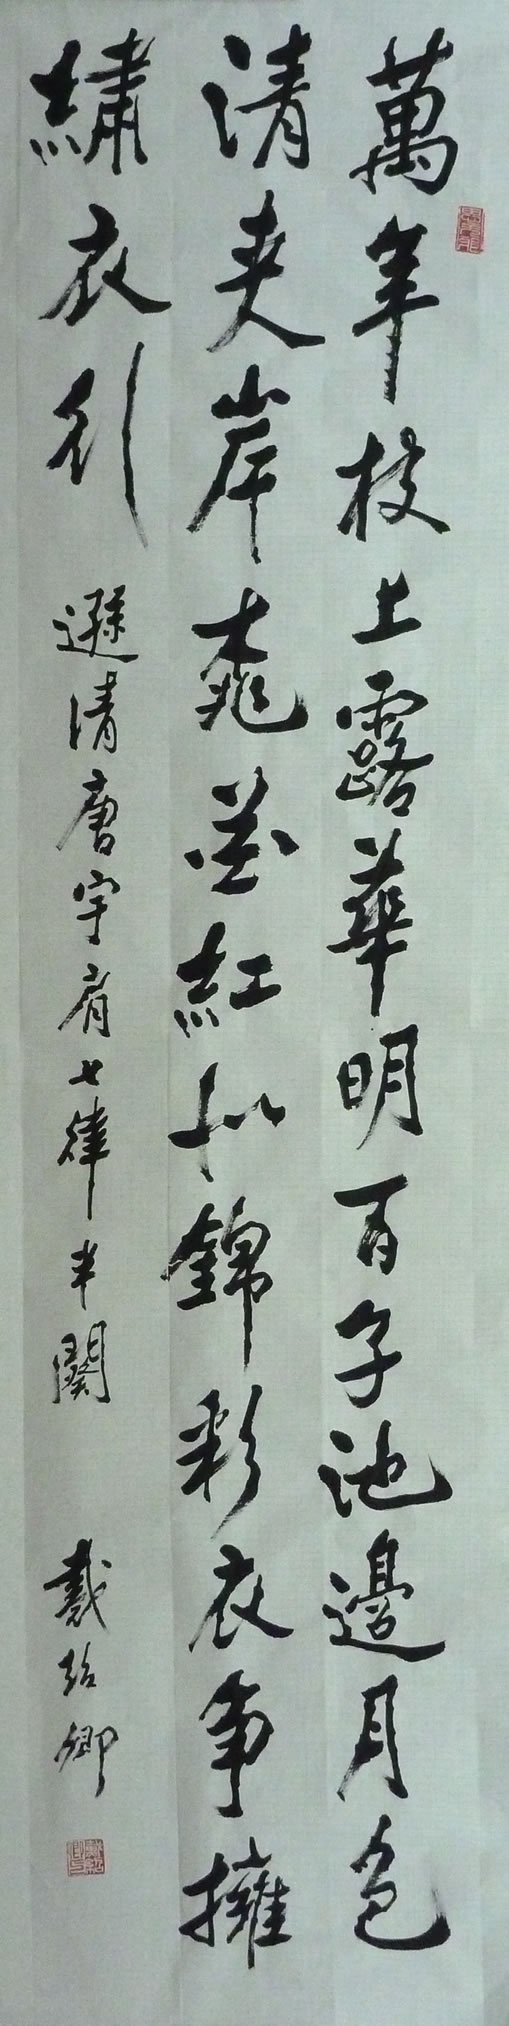 萬年枝上露華明百子池邊月色
清夾岸桃花紅似錦彩衣爭擁
繡衣行
遜清唐宇肩七律半闋
戴紹卿